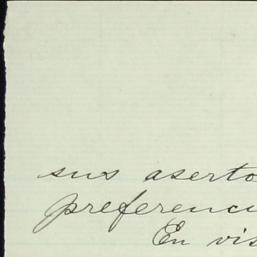 sus aserto
preferenci
En vis